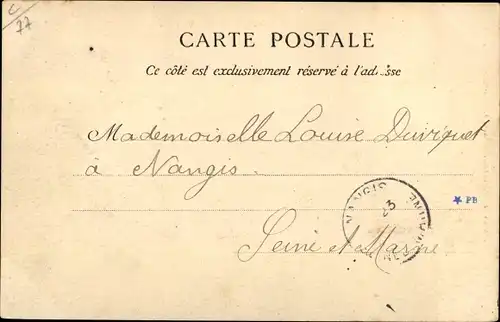 77
CARTE POSTALE
Ce côté est exclusivement réservé à l'ad sse
Mademoiselle Louise Duviquet
à Nangis.
NANGIS
23
Seine et Marne
★ PB